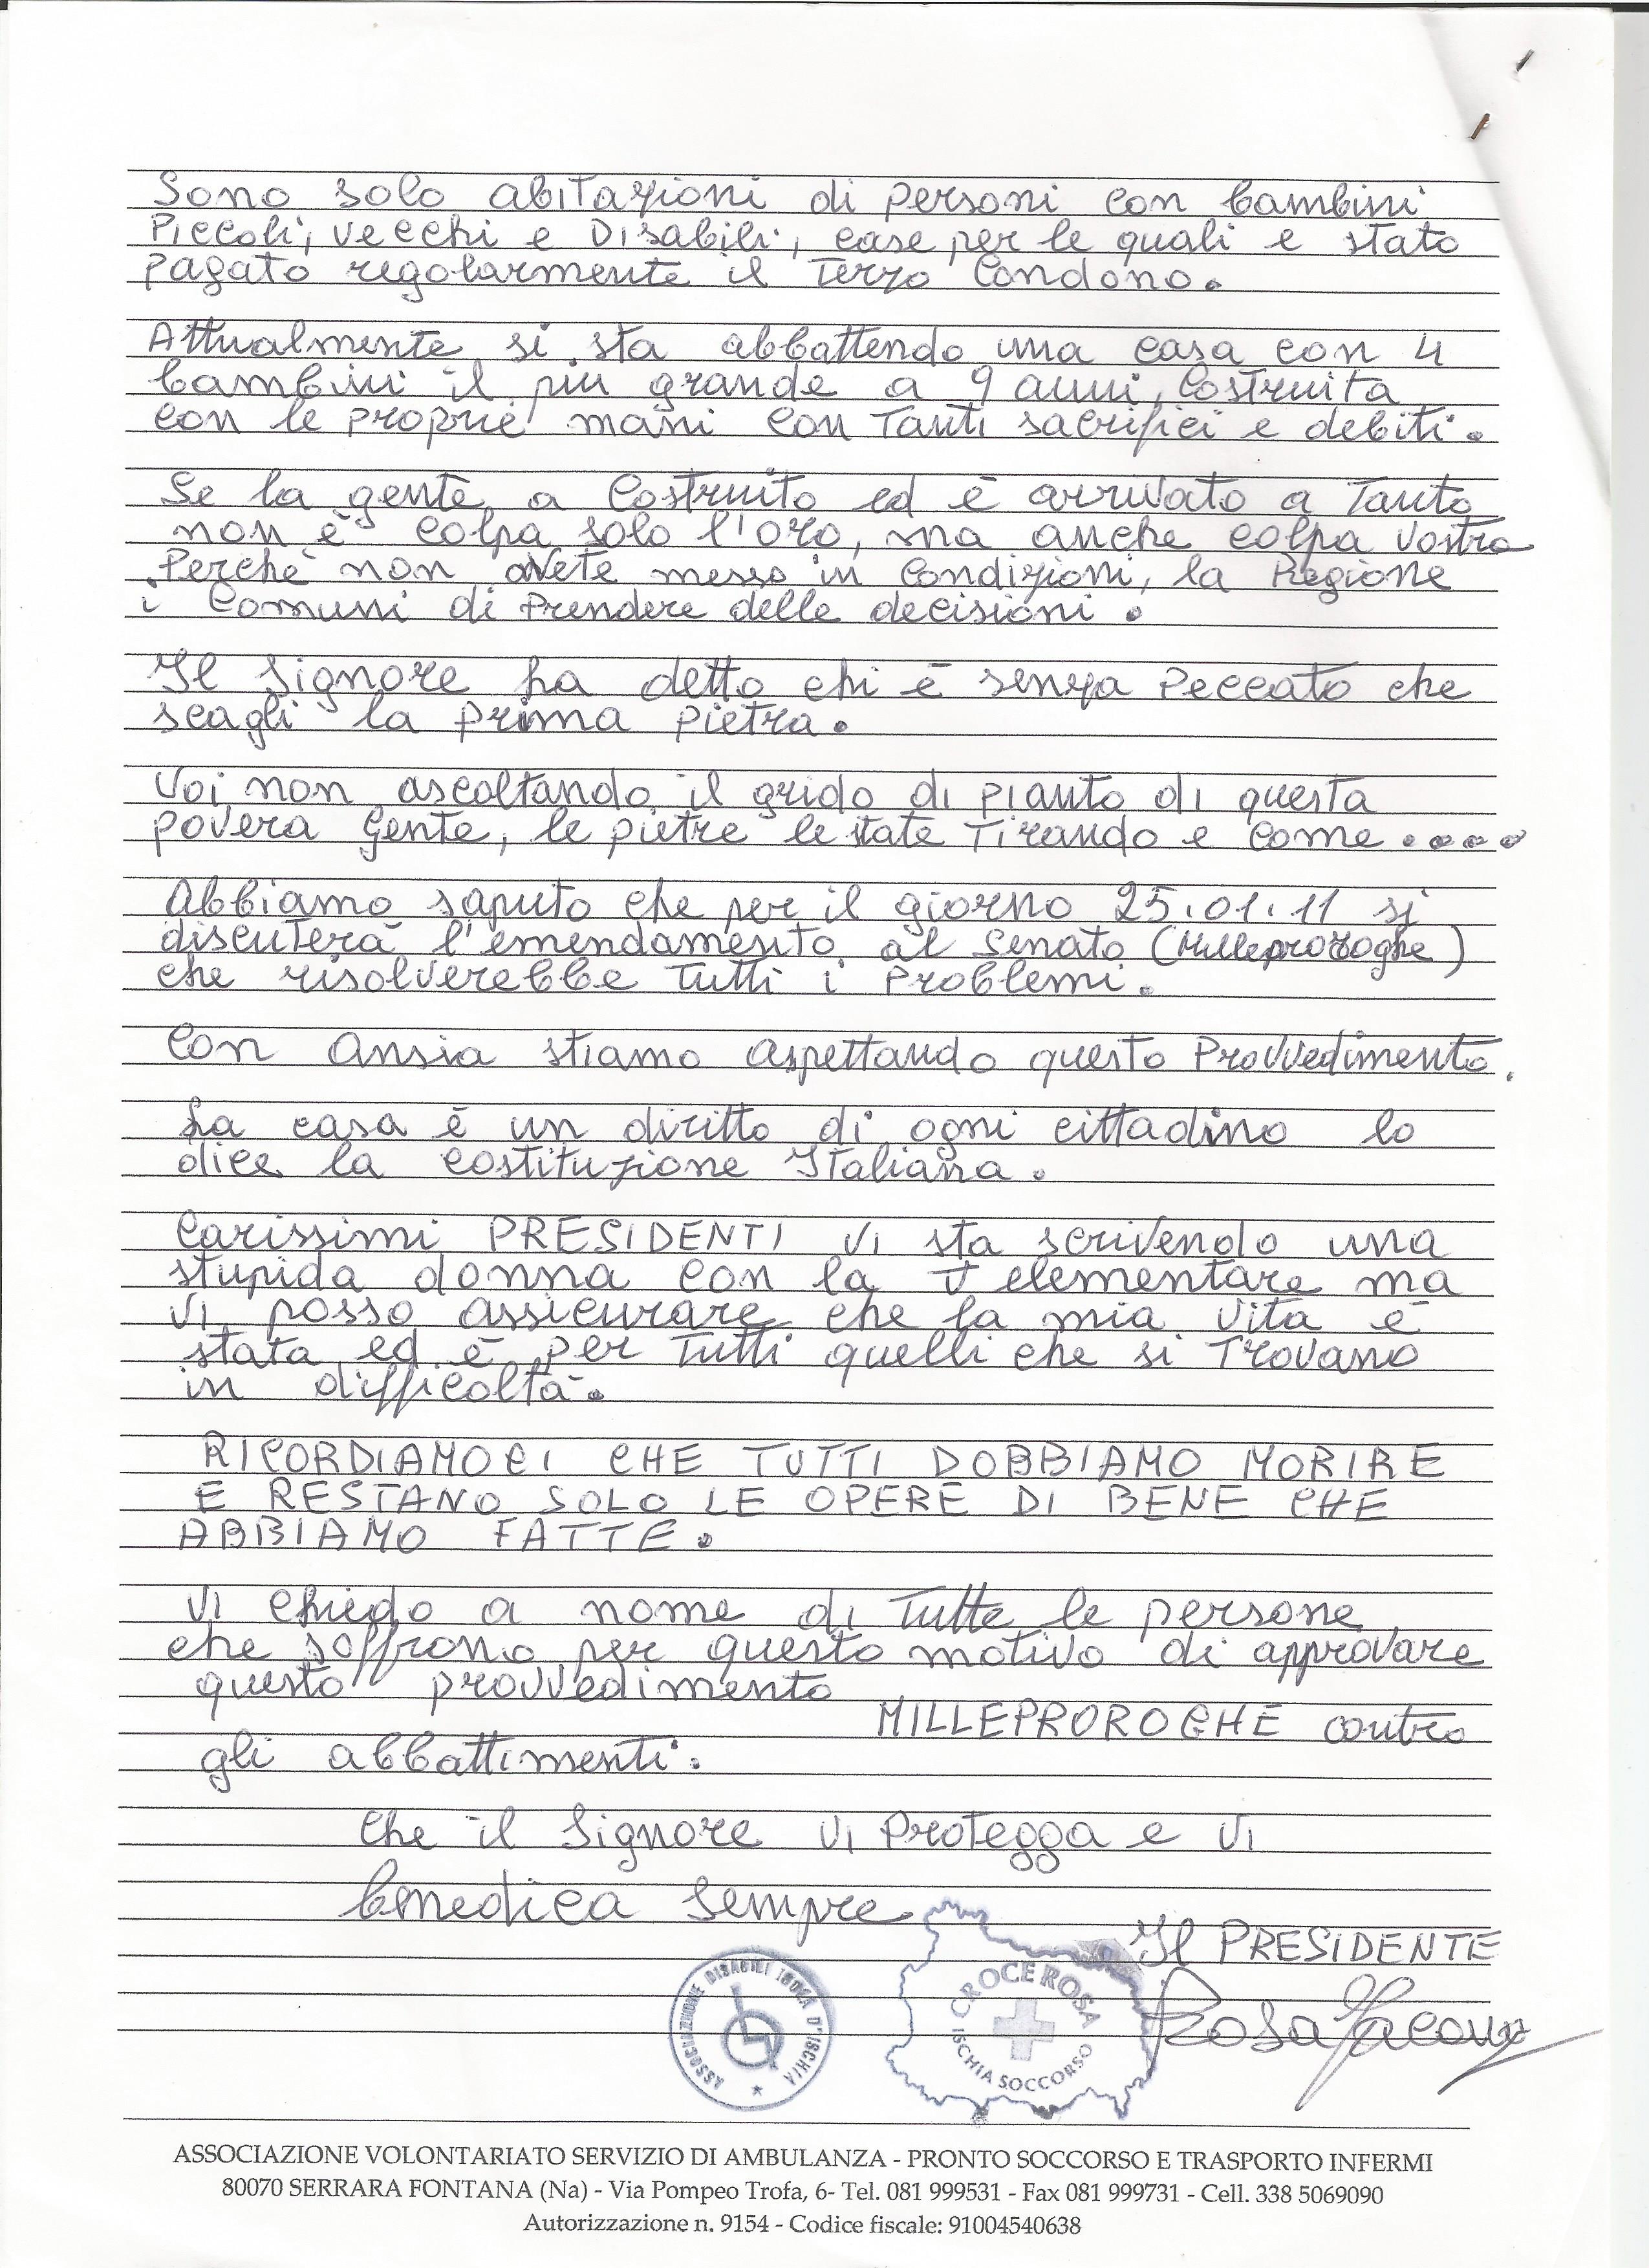 Sono solo abitazioni di personi con bambini
Piccoli, vecchi e Disabili, case per le quali e stato
pagato regolarmente il Terzo Condono.
Attualmente si sta abbattendo una casa con 4
bambini il più grande a 9 anni, Costruita
con le proprie mani con Tanti sacrifici e debiti.
Se la gente a Costruito ed è arrivato a Tanto
non è colpa solo l'oro, ma anche colpa vostra
Perchè non avete messo in Condizioni, la Regione
i Comuni di Prendere delle decisioni.
Il Signore ha detto chi è senza Peccato che
scagli la prima pietra.
Voi non ascoltando il grido di pianto di questa
povera Gente, le pietre le state Tirando e Come ....
Abbiamo saputo che per il giorno 25.01.11 si
discuterà l'emendamento al Senato (Milleproroghe)
che risolverebbe Tutti i Problemi.
Con Ansia stiamo aspettando questo Provvedimento.
La casa è un diritto di ogni cittadino lo
dice la costituzione Italiana.
Carissimi PRESIDENTI vi sta scrivendo una
stupida donna con la V elementare ma
vi posso assicurare che la mia vita è
stata ed è per Tutti quelli che si Trovano
in difficoltà.
RICORDIAMOCI CHE TUTTI DOBBIAMO MORIRE
E RESTANO SOLO LE OPERE DI BENE CHE
ABBIAMO FATTE.
Vi chiedo a nome di Tutte le persone
che soffrono per questo motivo di approvare
questo provvedimento
MILLEPROROGHE contro
gli abbattimenti.
Che il Signore vi Protegga e vi
benedica sempre
Il PRESIDENTE
Rosa Iacono
ASSOCIAZIONE DISABILI ISOLA D'ISCHIA
CROCE ROSA
ISCHIA SOCCORSO
ASSOCIAZIONE VOLONTARIATO SERVIZIO DI AMBULANZA - PRONTO SOCCORSO E TRASPORTO INFERMI
80070 SERRARA FONTANA (Na) - Via Pompeo Trofa, 6- Tel. 081 999531 - Fax 081 999731 - Cell. 338 5069090
Autorizzazione n. 9154 - Codice fiscale: 91004540638